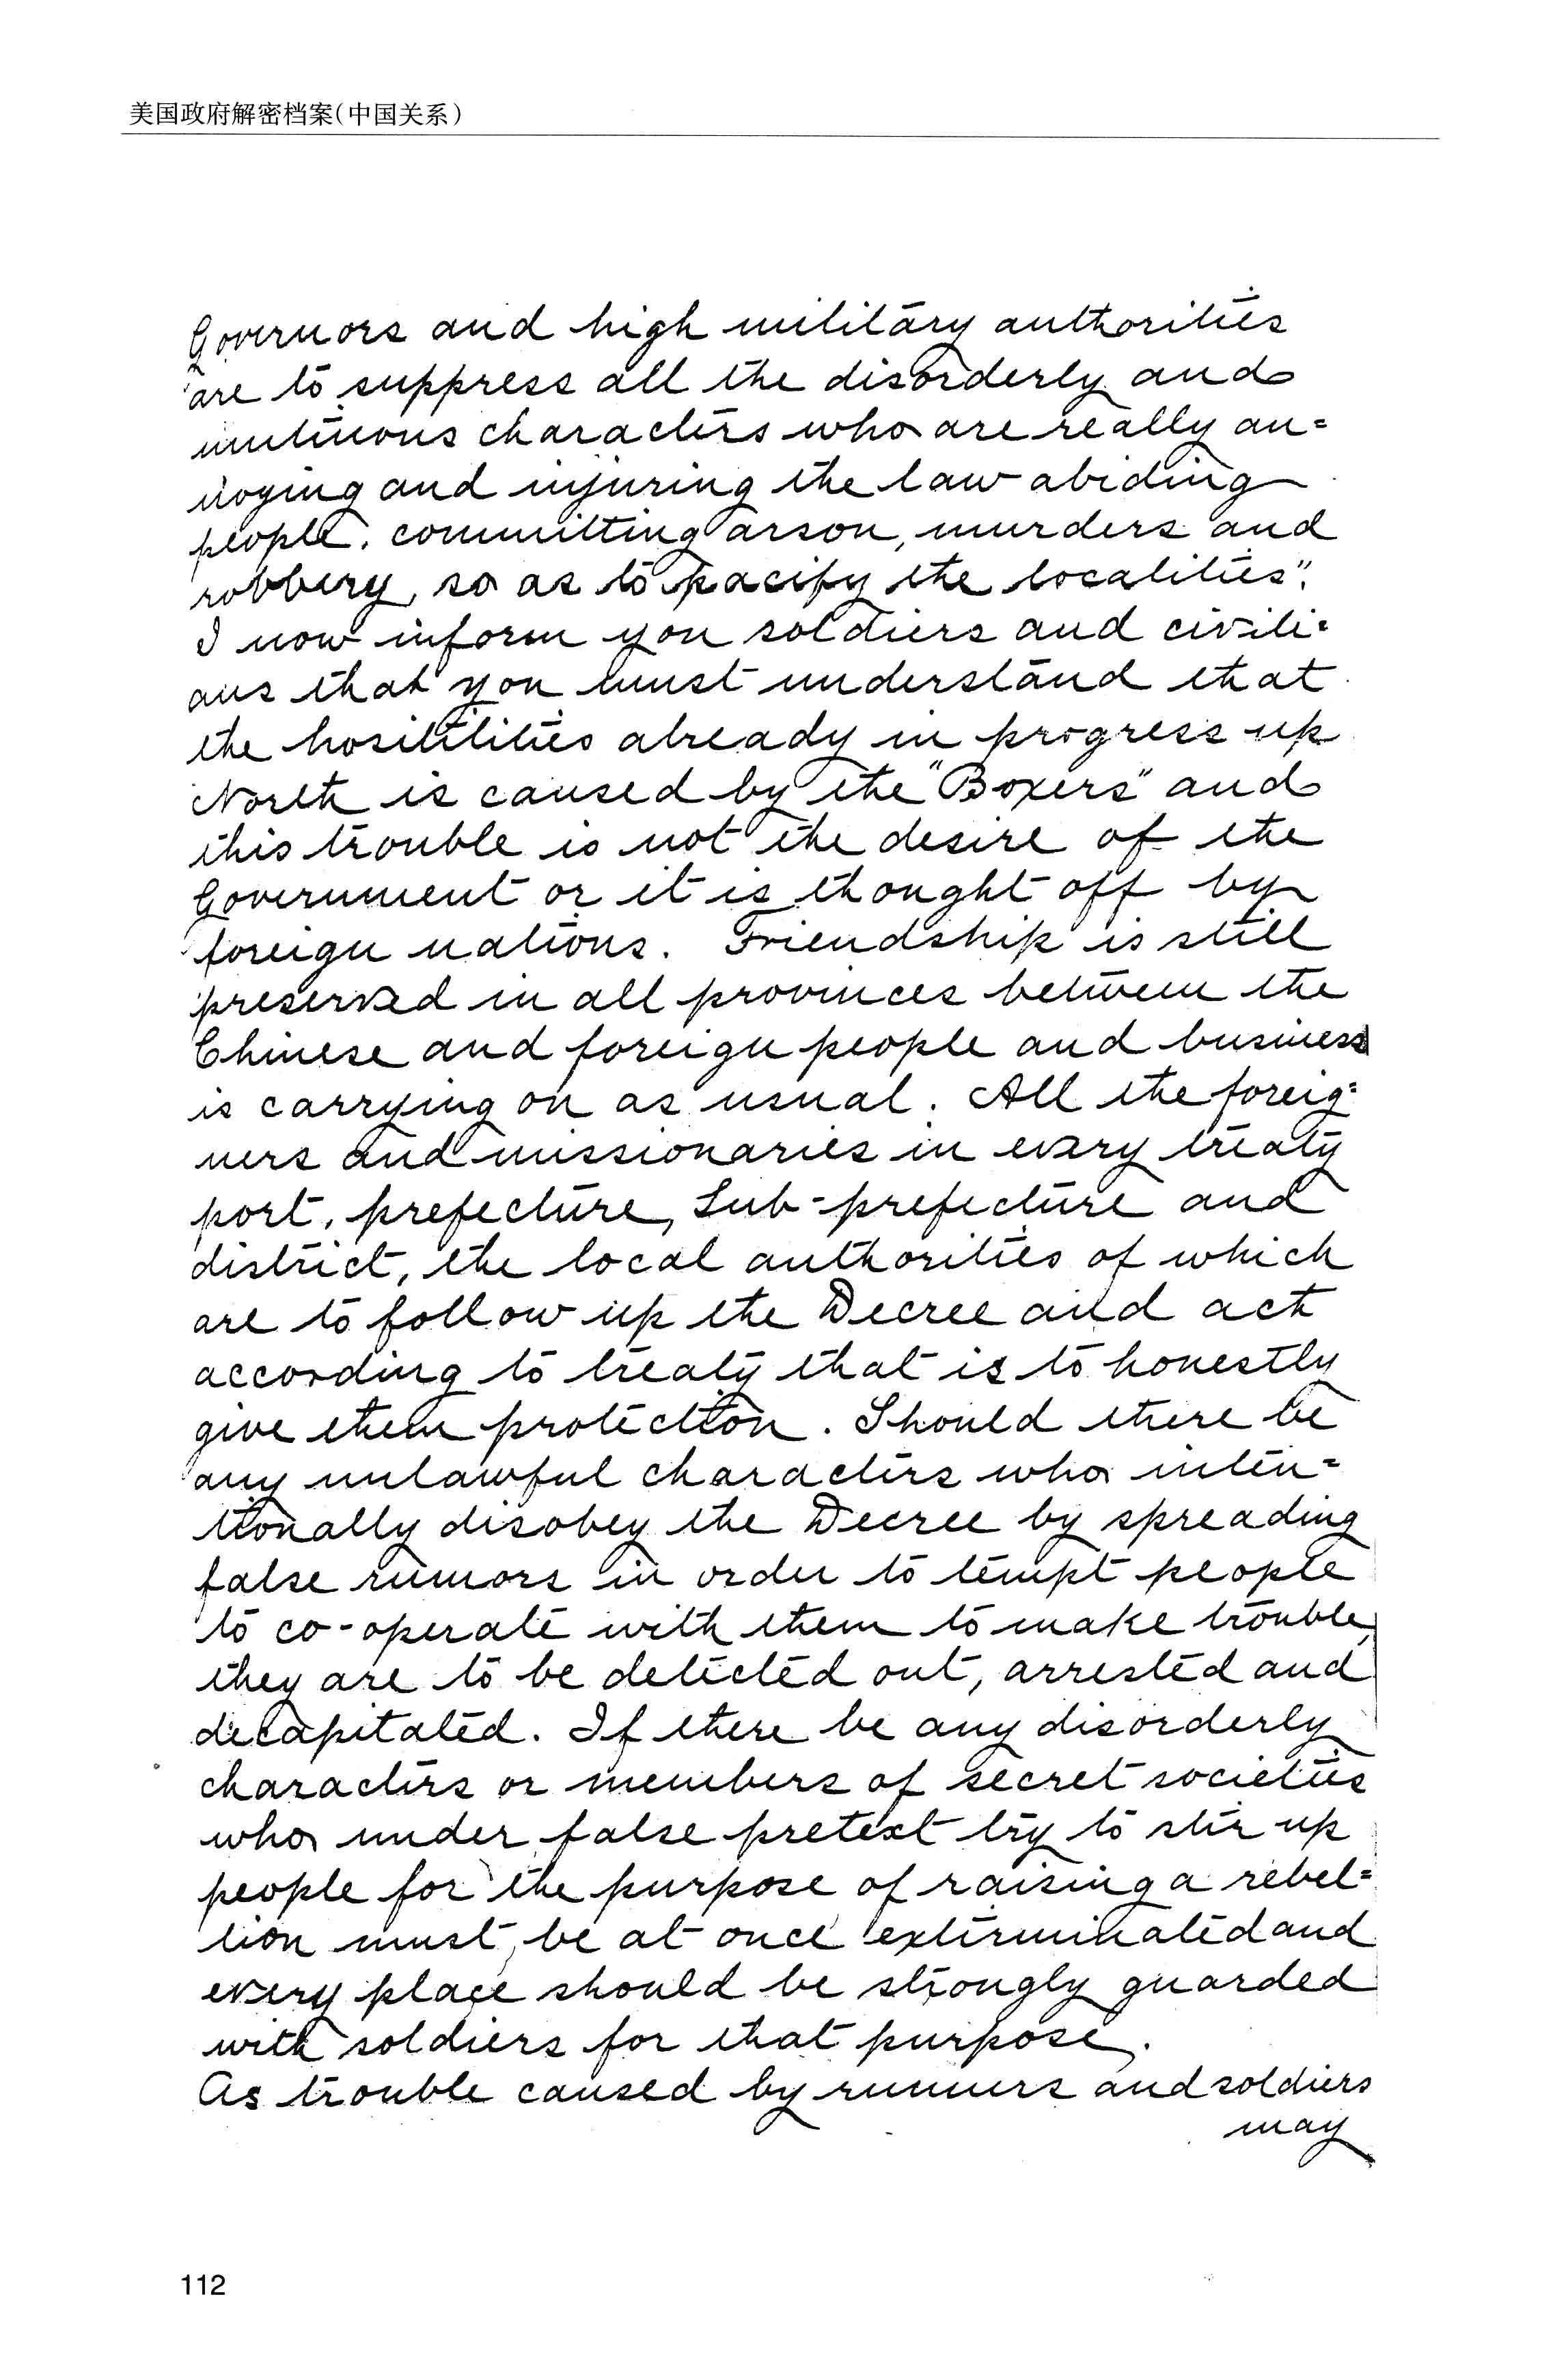 美国政府解密档案(中国关系)
Governors and high military authorities
are to suppress all the disorderly and
mutinous characters who are really an=
noying and injuring the law abiding
people, committing arson, murders and
robbery, so as to pacify the localities".
I now inform you soldiers and civili=
ans that you must understand that
the hositilities already in progress up
North is caused by the "Boxers" and
this trouble is not the desire of the
Government or it is thought off by
foreign nations. Friendship is still
preserved in all provinces between the
Chinese and foreign people and business
is carrying on as usual. All the foreig=
ners and missionaries in every treaty
port, prefecture, Sub-prefecture and
district, the local authorities of which
are to follow up the Decree and act
according to treaty that is to honestly
give them protection. Should there be
any unlawful characters who inten=
tionally disobey the Decree by spreading
false rumors in order to tempt people
to co-operate with them to make trouble,
they are to be detected out, arrested and
decapitated. If there be any disorderly
characters or members of secret societies
who under false pretext try to stir up
people for the purpose of raising a rebel=
lion must be at once exterminated and
every place should be strongly guarded
with soldiers for that purpose.
As trouble caused by runners and soldiers
may
112